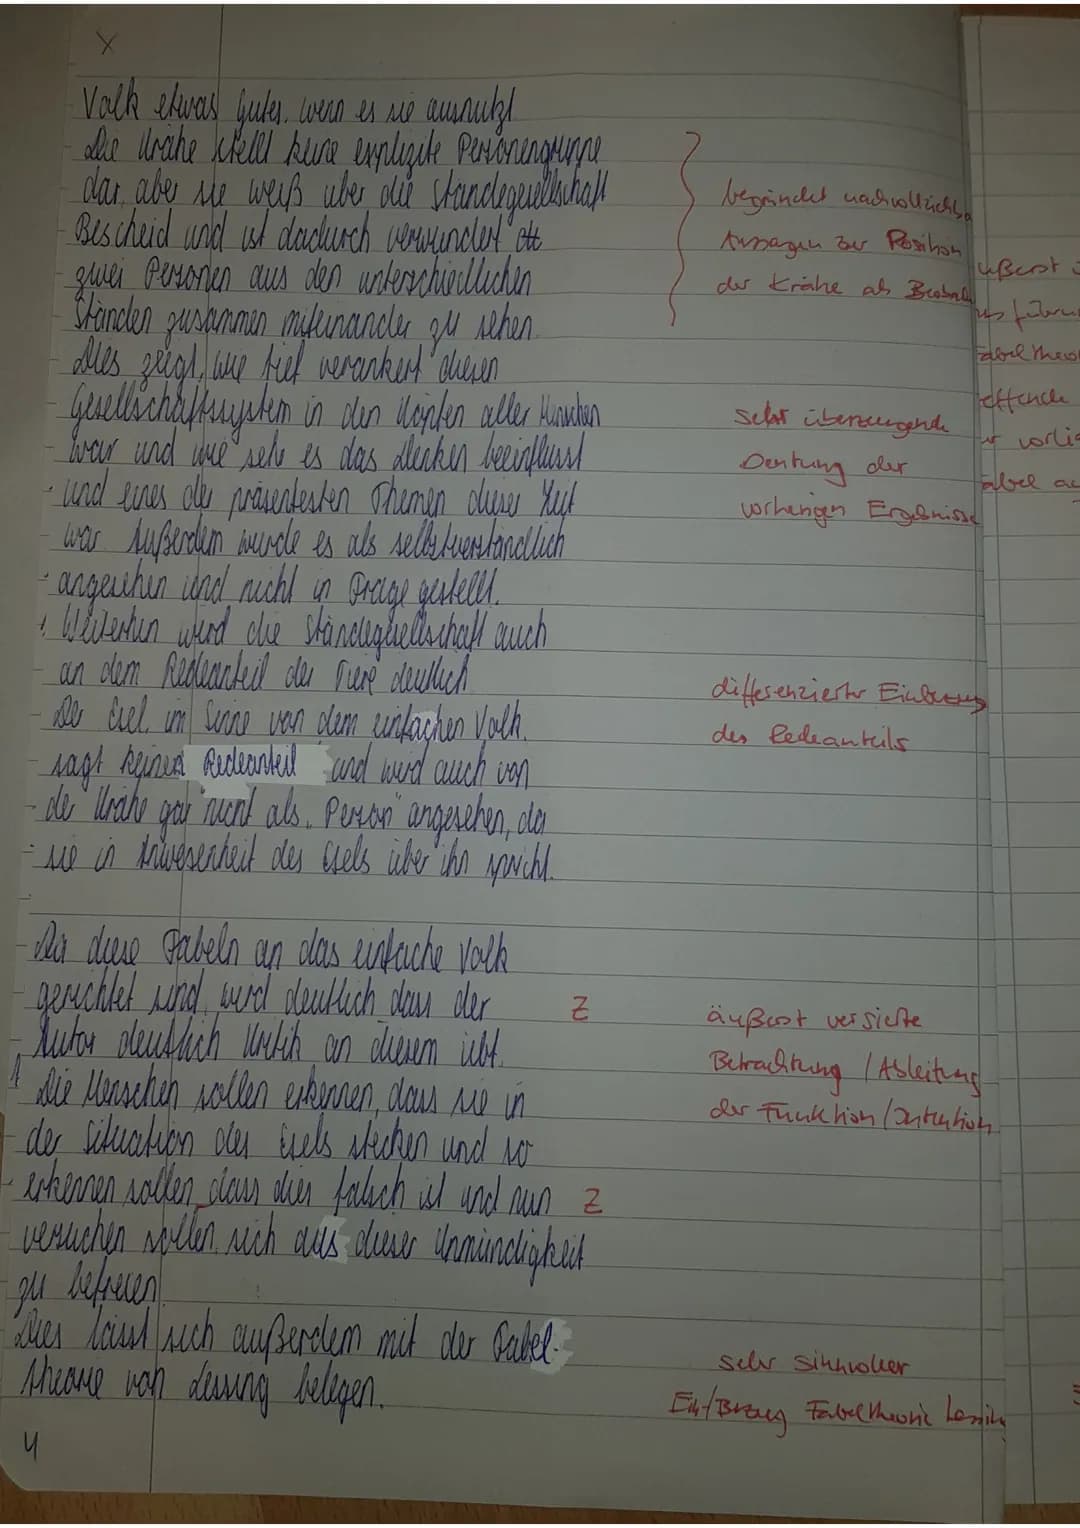 X
Volk etwas gutes, wenn es sie ausnutzt
Die Krähe stellt keine explizite Personengruppe
dar, aber sie weiß über die Ständegesellschaft
Bescheid und ist dadurch verwundert
zwei Personen aus den unterschiedlichen
Ständen zusammen miteinander zu sehen.
Dies zeigt, wie tief verankert diesen
Gesellschaftssystem in den Köpfen aller Menschen
war und wie sehr es das Denken beeinflusst
und eines der präsentesten Themen dieser Zeit
war. Außerdem wurde es als selbstverständlich
angesehen und nicht in Frage gestellt.
Weiterhin wird die Ständegesellschaft auch
an dem Redeanteil der Tiere deutlich
Der Esel, im Sinne von dem einfachen Volk,
sagt keinen Redeanteil und wird auch von
der Krähe gar nicht als „Person" angesehen, da
sie in Anwesenheit des Esels über ihn spricht.
Da diese Fabeln an das einfache Volk
gerichtet sind, wird deutlich dass der
Autor deutlich Kritik an diesem übt.
Die Menschen sollen erkennen, dass sie in
der Situation des Esels stecken und so
erkennen sollen dass dies falsch ist und nun
versuchen sollen, sich aus dieser Unmündigkeit
zu befreien.
Dies lässt sich außerdem mit der Fabel-
theorie von Lessing belegen.
4
begründet nachvollziehba
Aussagen zur Position
der Krähe als Beobach
sehr überzeugende
Deutung der
vorherigen Ergebnisse
differenzierter Einbezug
des Redeanteils
Z
äußerst versierte
Betrachtung / Ableitung
der Funktion/Intention
Z
sehr sinnvoller
Ein/Bezug Fabeltheorie Lessing
ußerst
Fabeltheo
effende
vorlie
abel